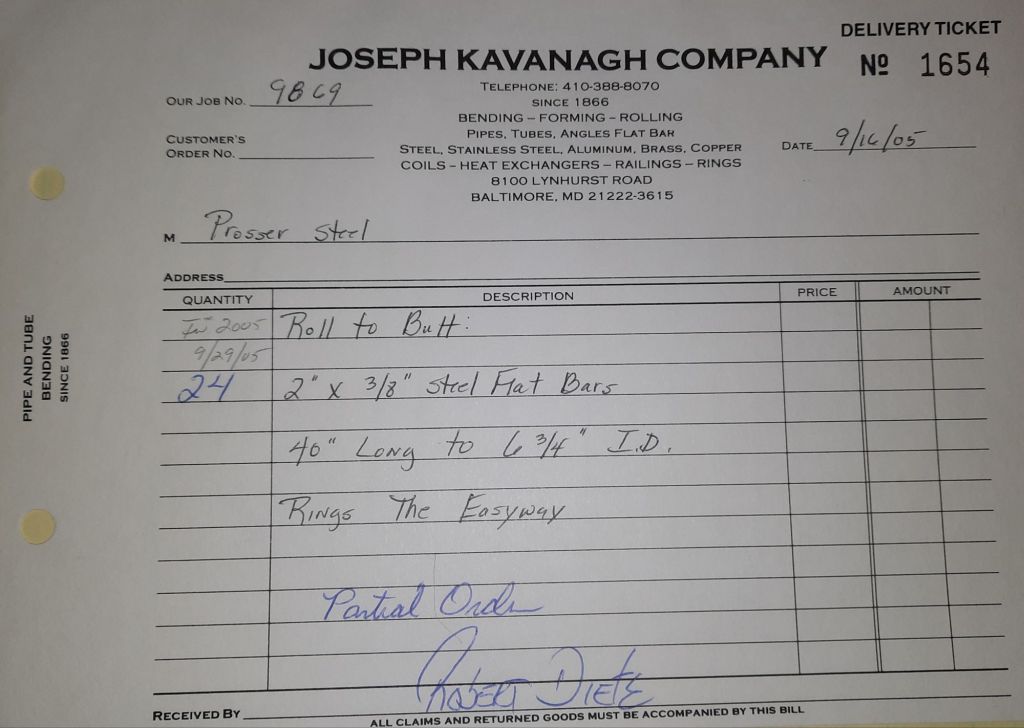 DELIVERY TICKET
JOSEPH KAVANAGH COMPANY
Nº 1654
TELEPHONE: 410-388-8070
OUR JOB NO. 9869
SINCE 1866
BENDING – FORMING – ROLLING
CUSTOMER'S
ORDER NO.
PIPES, TUBES, ANGLES FLAT BAR
STEEL, STAINLESS STEEL, ALUMINUM, BRASS, COPPER
DATE 9/16/05
COILS – HEAT EXCHANGERS – RAILINGS – RINGS
8100 LYNHURST ROAD
BALTIMORE, MD 21222-3615
M Prosser Steel
ADDRESS
QUANTITY DESCRIPTION PRICE AMOUNT
2005 Roll to Butt:
9/29/05
24 2" x 3/8" Steel Flat Bars
40" Long to 6 3/4" I.D.
Rings The Easyway
Partial Order
Robert Dietz
RECEIVED BY
ALL CLAIMS AND RETURNED GOODS MUST BE ACCOMPANIED BY THIS BILL
PIPE AND TUBE
BENDING
SINCE 1866